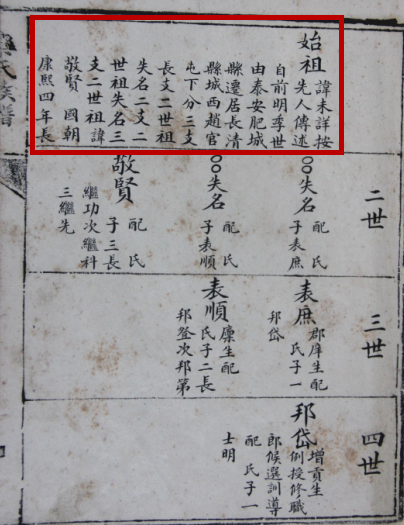 始祖
諱未詳按
先人傳述
自前明季世
由泰安肥城
縣遷居長清
縣城西趙官
屯下分三支
長支二世祖
失名二支二
世祖失名三
支二世祖諱
敬賢 國朝
康熙四年長
氏族譜
二世
○○失名
配 氏
子表庶
○○失名
配 氏
子表順
敬賢
配 氏
子三長
繼功次繼科
三繼先
三世
表庶
郡庠生配
氏子一
邦岱
表順
廩生配
氏子二長
邦登次邦第
四世
邦岱
增貢生
例授修職
郎候選訓導
配 氏子一
士明